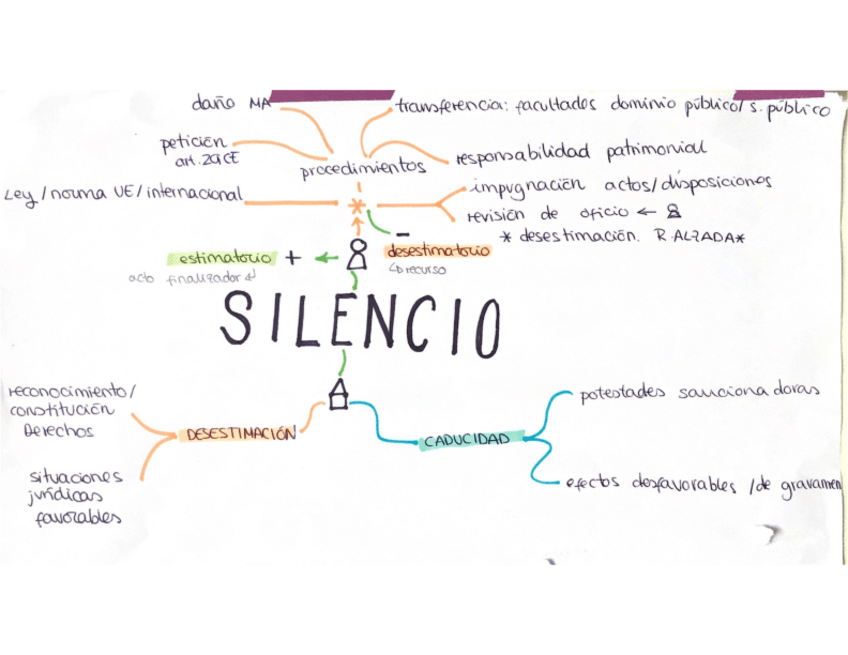 daño MA
transferencia: facultades dominio público/s. público
petición
art. 29 CE
procedimientos
responsabilidad patrimonial
Ley/norma UE/internacional
*
impugnación actos/disposiciones
revisión de oficio ←
* desestimación. R. ALZADA*
estimatorio + ←
acto finalizador ↲
−
desestimatorio
↳ recurso
SILENCIO
reconocimiento/
constitución
Derechos
DESESTIMACIÓN
situaciones
jurídicas
favorables
CADUCIDAD
potestades sancionadoras
efectos desfavorables /de gravamen